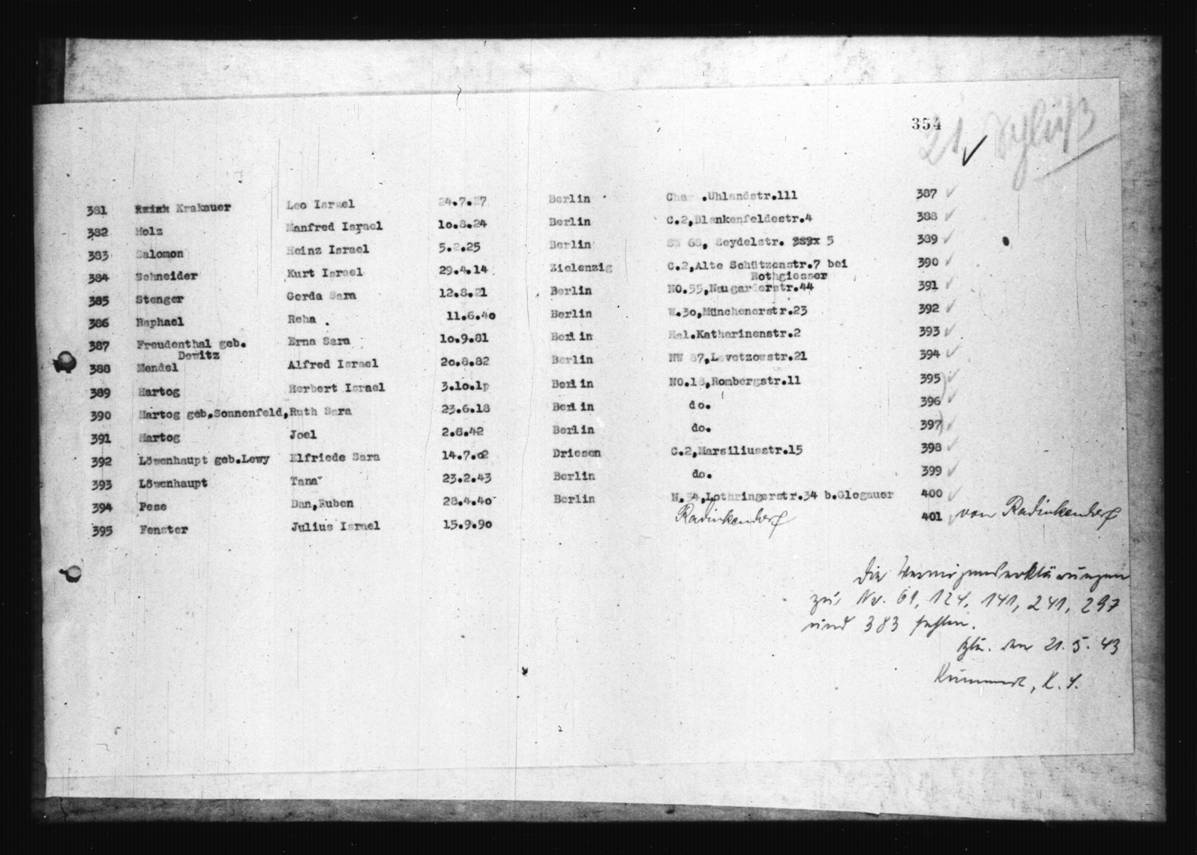 354
21 ✓ Schluß
381 Krakauer Leo Israel 24.7.27 Berlin Char .Uhlandstr.111 387 ✓
382 Holz Manfred Israel 10.8.24 Berlin C.2,Blankenfeldestr.4 388 ✓
383 Salomon Heinz Israel 5.2.25 Berlin SW 68, Seydelstr. 5 389 ✓
384 Schneider Kurt Israel 29.4.14 Zielenzig C.2,Alte Schützenstr.7 bei 390 ✓
Rothgiesser
385 Stenger Gerda Sara 12.8.21 Berlin NO.55,Naugarderstr.44 391 ✓
386 Raphael Reha . 11.6.40 Berlin W.30,Münchenerstr.23 392 ✓
387 Freudenthal geb. Erna Sara 10.9.81 Berlin Hal.Katharinenstr.2 393 ✓
Dewitz
388 Mendel Alfred Israel 20.8.82 Berlin NW 87,Levetzowstr.21 394 ✓
389 Hartog Herbert Israel 3.10.1p Berlin NO.18,Rombergstr.11 395 ✓
390 Hartog geb.Sonnenfeld,Ruth Sara 23.6.18 Berlin do. 396 ✓
391 Hartog Joel 2.8.42 Berlin do. 397 ✓
392 Löwenhaupt geb.Lewy Elfriede Sara 14.7.02 Driesen C.2,Marsiliusstr.15 398 ✓
393 Löwenhaupt Tana 23.2.43 Berlin do. 399 ✓
394 Pese Dan,Ruben 28.4.40 Berlin N.54,Lothringerstr.34 b.Glogauer 400 ✓
395 Fenster Julius Israel 15.9.90 Radinkendorf 401 ✓ von Radinkendorf
Die Vermögenserklärungen
zu Nr. 61, 124, 141, 241, 297
und 383 fehlen.
Bln. den 21.5.43